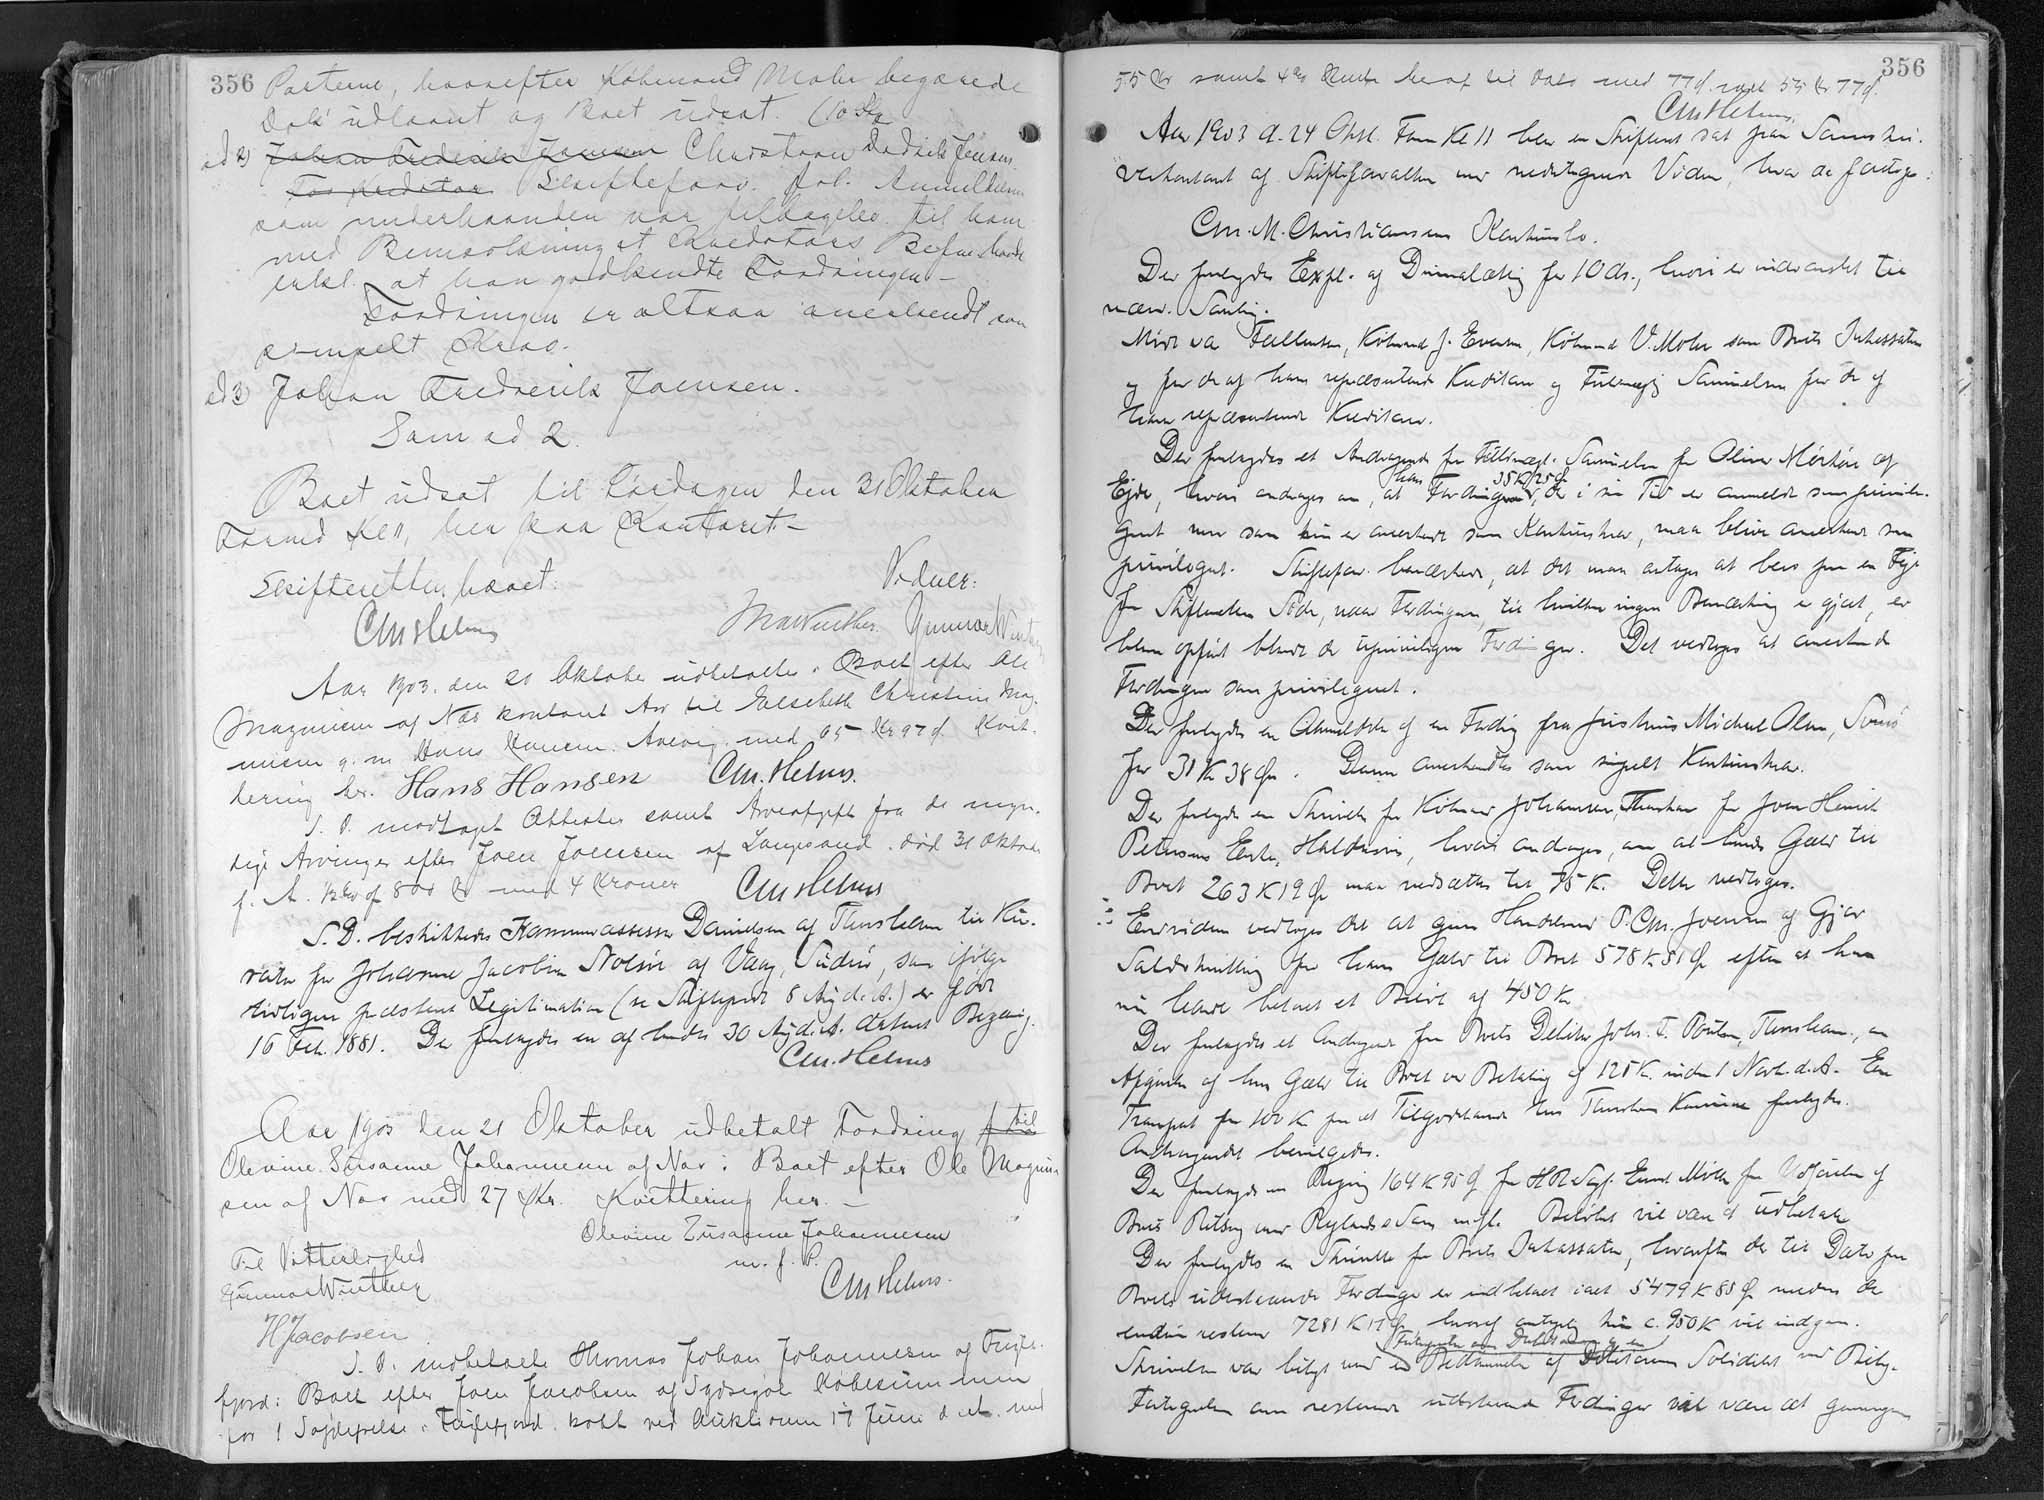 356
Parterne, hvorefter Købmand Mohr begærede
Dok udlaant og Boet udsat.
ad 2) Johan Frederik Joensen Christian Fredrik Jensen
For Kreditor Skifteforv. Anmeldelsen
som underhaanden var tilbagelev. til ham
med Bemærkning at Kreditors
erkl. at han godkendte Fordringen —
Fordringen er altsaa anerkendt som
simpelt Krav.
ad 3) Johan Frederik Joensen.
Som ad 2.
Boet udsat til Lørdagen den 31 Oktober
Formd Kl 11, her paa Kontoret —
Skifteretten hævet.
Vidner:
CMHelms
Gunnar Winther
Aar 1903. den 21 Oktober udbetaltes i Boet efter Ole
Magnussen af Næs kontant Arv til Elsebeth Christine Mag-
nussen g. m. Hans Hansen Arvevig. med 65 Kr 97 ø. Kvit-
tering her. Hans Hansen CM. Helms.
S. D. modtaget Attester samt Arveafgift fra de myn-
dige Arvinger efter Joen Joensen af Langesand. død 31 Oktober
f. A. af 800 Kr med 4 Kroner CMHelms
S. D. beskikkedes Kammerassessor Danielsen af Thorshavn til Ku-
rator for Johanne Jacobine Nolsøe af Vaag, Suderø, som ifølge
tidligere præsteret Legitimation (se Skifteprot 8 Aug d. A.) er født
16 Feb. 1881. Der fremlagdes en af hendes 30 Aug. d. A. dateret Begæring.
CM. Helms
Aar 1903 den 21 Oktober udbetalt Fordring til
Olevine Susanne Johannesen af Næs i Boet efter Ole Magnus-
sen af Næs med 27 Kr. Kvittering her. —
Olevine Susanne Johannesen
m. f. P.
Til Vitterlighed
Gunnar Winther
CMHelms.
HJacobsen
S. D. indbetalte Thomas Johan Johannesen af Fugle-
fjord i Boet efter Joen Jacobsen af Sydregøte Købesummen
for 1 i Fuglefjord købt ved Auktionen 17 Juni d. A. med
356
55 Kr samt 4% Rente heraf til Dato med 77 ø. ialt 55 Kr 77 ø.
CMHelms.
Aar 1903 d. 24 Okt. Form Kl 11 blev en Skifteret sat paa Sorenskri-
verkontoret af Skifteforvalteren med undertegnede Vidner, hvor da foretoges:
Chr. M. Christiansens Konkursbo.
Der fremlagdes Expl. af Dimmalætting for 10 ds., hvori er indvarslet til
nærv. Samling.
Mødt var Købmand J. Evensen, Købmand V. Mohr som Boets Inkassator
og for de af ham repræsenterede Kreditorer og Fuldmægtig Samuelsen for de af
ham repræsenterede Kreditorer.
Der fremlagdes et Andragende fra Fuldmægt. Samuelsen for Oline Mørkøre af
Ejde, hvori andrages om, at hans Fordring 35 Kr 25 Ø, der i sin Tid er anmeldt som privile-
geret men som kun er anerkendt som Konkurskrav, maa blive anerkendt som
privilegeret. Skifteforv. bemærkede, at det maa antages at bero paa en Fejl
fra Skifterettens Side, naar Fordringen, til hvilken ingen Bemærkning er gjort, er
bleven opført blandt de uprivilegerede Fordringer. Det vedtoges at anerkende
Fordringen som privilegeret.
Der fremlagdes en Anmeldelse af en Fordring fra Justinus Michael Olsen,
for 31 Kr 38 Øre. Denne anerkendtes som simpelt Konkurskrav.
Der fremlagdes en Skrivelse fra Købmand Johannesen, Thorshavn for Joen Henrik
Petersens Enke, Haldersvig, hvori andrages, om at hendes Gæld til
Boet 263 K 19 Ø maa nedsættes til 75 K. Dette vedtoges.
Endvidere vedtoges det at give Handelsmand P. Chr. Joensen af Gjov
Saldokvittering for hans Gæld til Boet 578 K 81 Ø efter at han
nu havde betalt et Beløb af 450 Kr.
Der fremlagdes et Andragende fra Boets Debitor Johs. T. Poulsen, Thorshavn, om
Afgørelse af hans Gæld til Boet ved Betaling af 125 K. inden 1 Novb. d. A. En
Transport for 100 K paa et Tilgodehavende hos Thorshavns Kommune fremlagdes.
Andragendet bevilgedes.
Der fremlagdes en Regning 164 K 95 Ø fra HRSagf. for Udførelsen af
Boets Retssag mod Rylands & Sons Beløbet vil være at udbetale
Der fremlagdes en Skrivelse fra Boets Inkassator, hvorefter der til Dato paa
Boets udestaaende Fordringer er indbetalt ialt 5479 K 85 Ø medens der
endnu resterer 7281 K 17 Ø, hvoraf antagelig kun c. 950 K vil indgaa.
Fortegnelse over Debitorerne og en
Skrivelsen var bilagt med en Bedømmelse af Debitorernes Soliditet med Bilag.
Fortegnelsen over resterende udestaaende Fordringer vil være at gennemgaa